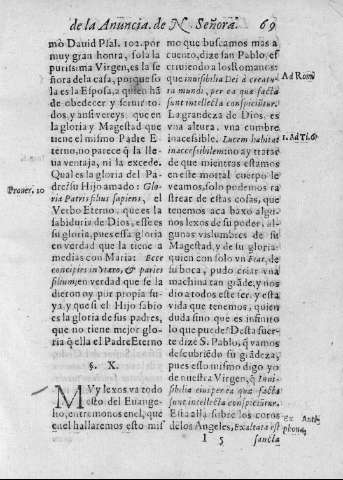 de la Anũcia. de N. Señora. 69
mò Dauid Psal. 102. por
muy gran honra, sola la
purissima Virgen, es la se
ñora dela casa, porque so
la es la Esposa, a quien hã
de obedecer y seruir to-
dos, y ansi vereys que en
la gloria y Magestad que
tiene el mismo Padre E-
terno, no parece q̃ la lle
ua ventaja, ni la excede.
Qual es la gloria del Pa-
dre? su Hijo amado: Glo-
Prouer. 10
ria Patris filius sapiens, el
Verbo Eterno, que es la
sabiduria de Dios, esse es
su gloria, pues essa gloria
en verdad que la tiene a
medias con Maria: Ecce
concipies in vtero, & paries
filium, en verdad que se la
dieron oy por propia su-
ya, y que si el Hijo sabio
es la gloria de sus padres,
que no tiene mejor glo-
ria q̃ ella el Padre Eterno
§. X.
MVy lexos va todo
esto del Euange-
lio, entremonos en el, que
en el hallaremos esto mis
mo que buscamos mas a
cuento, dize san Pablo, es
criuiendo a los Romanos:
que inuisibilia Dei à creatu
Ad Rom.
ra mundi, per ea quæ facta
sunt intellecta conspiciũtur.
La grandeza de Dios, es
vna altura, vna cumbre
inacessible. Lucem habitat
1. Ad Ti. 6.
inaccessibilem no ay tratar
de que mientras estamos
en este mortal cuerpo le
veamos, solo podemos ra
strear de estas cosas, que
tenemos aca baxo algu-
nos lexos de su poder, al-
gunas vislumbres de su
Magestad, y de su gloria:
quien con solo vn Fiat, de
su boca, pudo criar vna
machina tan grãde, y nos
dio a todos este ser, y esta
vida que tenemos, quien
duda sino que es infinito
lo que puede? Desta suer-
te dize S. Pablo, q̃ vamos
descubriẽdo su grãdeza,
pues esto mismo digo yo
de nuestra Virgen, q̃ Inui-
sibilia eius per ea quæ facta
sunt intellecta conspiciũtur.
Esta alla sobre los coros
de los Angeles, Exaltata est
Ex Antiphona,
I 5
sancta